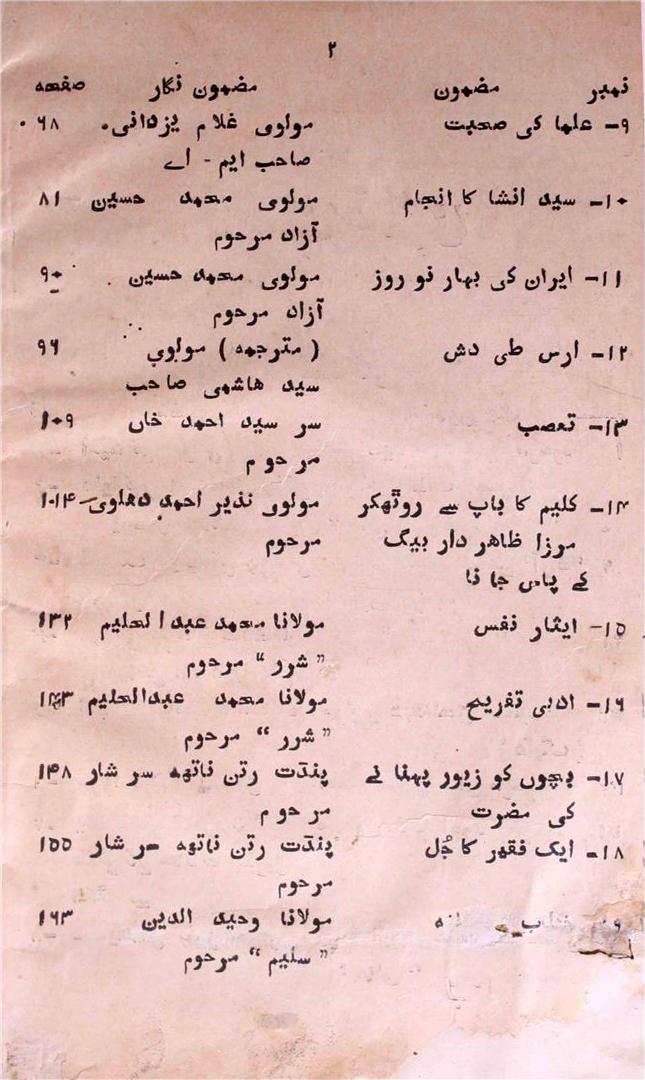 ۲
نمبر مضمون مضمون نگار صفحه
۹- علما کی صحبت مولوی غلام یزدانی ۶۸
صاحب ایم - اے
۱۰- سید انشا کا انجام مولوی محمد حسین ۸۱
آزاد مرحوم
۱۱- ایران کی بہار نو روز مولوی محمد حسین ۹۰
آزاد مرحوم
۱۲- ارس طی دش ( مترجمه ) مولوی ۹۶
سید هاشمی صاحب
۱۳- تعصب سر سید احمد خاں ۱۰۹
مرحوم
۱۴- کلیم کا باپ سے روٹھکر مولوی نذیر احمد دهلوی
مرزا ظاهر دار بیگ مرحوم
کے پاس جانا
۱۵- ایثار نفس مولانا محمد عبدالحلیم ۱۳۲
” شرر “ مرحوم
۱۶- ادبی تفریح مولانا محمد عبدالحلیم ۱۴۳
” شرر “ مرحوم
۱۷- بچوں کو زیور پہنانے پنڈت رتن ناتھه سرشار ۱۴۸
کی مضرت مرحوم
۱۸- ایک فقیر کا جُل پنڈت رتن ناتھه سرشار ۱۵۵
مرحوم
مولانا وحید الدین ۱۶۳
” سلیم “ مرحوم